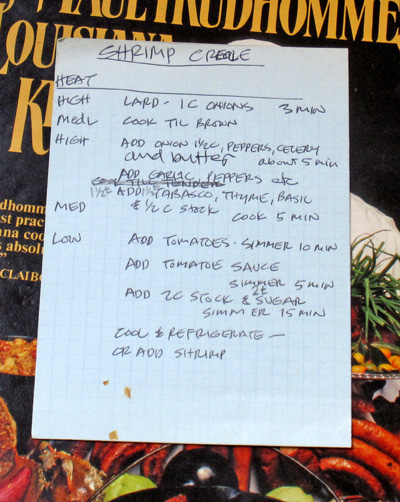 PAUL PRUDHOMME
LOUISIANA
K
SHRIMP CREOLE
HEAT
HIGH LARD - 1C ONIONS 3 MIN
MEDL COOK TIL BROWN
HIGH ADD ONION 1½C, PEPPERS, CELERY
and butter about 5 min
ADD GARLIC, PEPPERS etc
COOK TILL TENDER
1½t ADD TABASCO, THYME, BASIL
MED & ½C STOCK COOK 5 MIN
LOW ADD TOMATOES - SIMMER 10 MIN
ADD TOMATOE SAUCE
SIMMER 5 MIN
2t
ADD 2C STOCK & SUGAR
SIMMER 15 MIN
COOL & REFRIGERATE —
OR ADD SHRIMP
udhomm
st prac
ana coo
s absol
CLAIBO